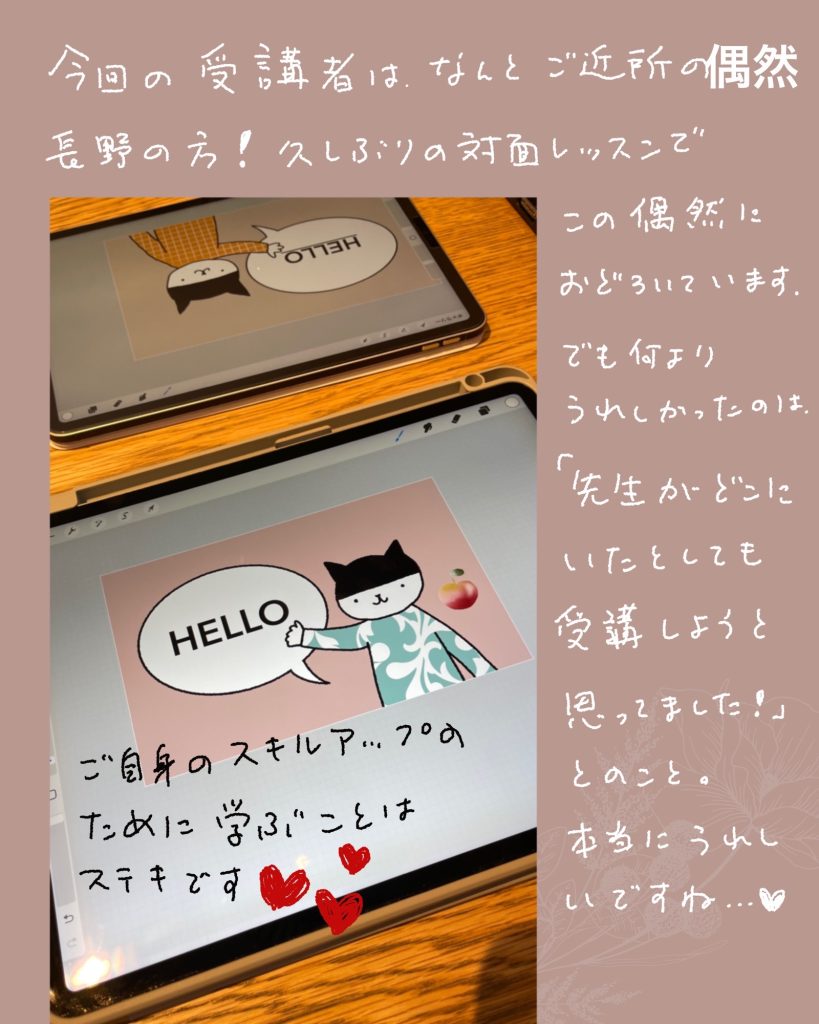 今回の受講者は、なんとご近所の偶然
長野の方！久しぶりの対面レッスンで
この偶然に
おどろいています。
でも何より
うれしかったのは、
「先生がどこに
いたとしても
受講しようと
思ってました！」
とのこと。
本当にうれし
いですね…
HELLO
HELLO
ご自身のスキルアップの
ために学ぶことは
ステキです